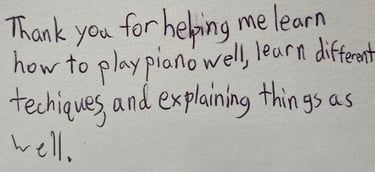 Thank you for helping me learn
how to play piano well, learn different
techiques, and explaining things as
well.